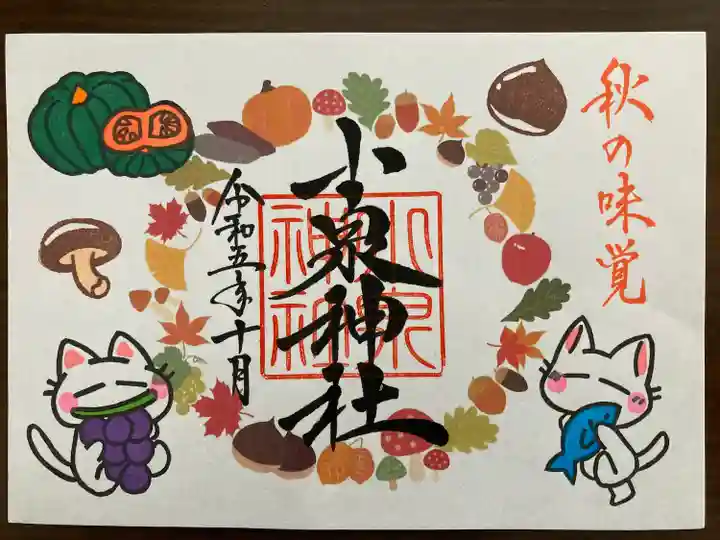 秋の味覚
小泉神社
令和五年十月
小泉
神社